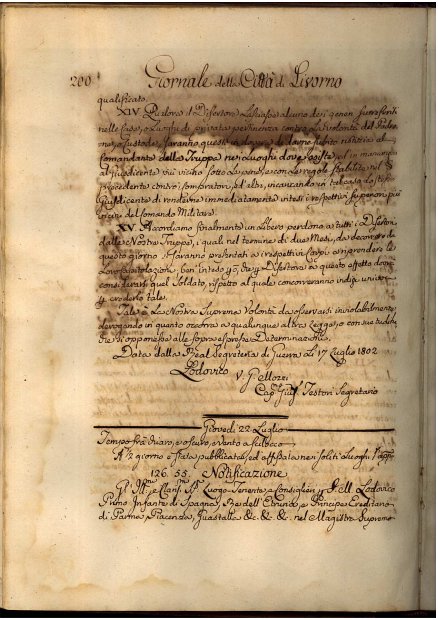 200
Giornale della Città di Livorno
qualificato.
XIV.
nelle Case, o Luoghi di privata pertinenza contro la volontà del Padro-
ne, o Custode, saranno questi in dovere di darne subito notizia al
Comandante della Truppa nei Luoghi dove esiste, ed in mancanza
al giusdicente più vicino sotto le pene, e con le regole stabilite nel §
precedente contro i Compratori, ed altri, incaricando in tal caso lo stesso
Giusdicente di renderne immediatamente intesi i respettivi Superiori più
vicini del Comando Militare.
XV. Accordiamo finalmente un libero perdono a tutti i Disertori
dalle Nostre Truppe, i quali nel termine di due Mesi, da decorrere da
questo giorno si saranno presentati ai respettivi Corpi a riprendere la
Loro Capitolazione, ben inteso, che per Disertore a questo effetto dovrà
considerarsi quel Soldato, rispetto al quale concorreranno
crederlo tale.
Tale è la Nostra Suprema Volontà da osservarsi inviolabilmente
derogando in quanto occorra a qualunque altra Legge, o consuetudine
che si opponesse alle sopra espresse Determinazioni.
Data dalla Real Segreteria di Guerra li 17 Luglio 1802
Lodovico
V. G. Mozzi
Cap. Giuf. Testori Segretario
Giovedì 22 Luglio
Tempo frà chiaro, e oscuro, e vento a Scilocco
A 2 giorno è stata pubblicata, ed affissata nei soliti Luoghi
126. 55. Notificazione
Gl' Ill.mi e Clar.mi SS.ri Luogo-Tenente, e Consiglieri di S. M. Lodovico
Primo Infante di Spagna, Re dell' Etruria, e Principe Ereditario
di Parma, Piacenza, Guastalla &c. &c. &c. nel Magistrato Supremo